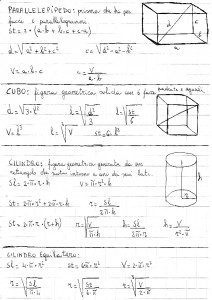 PARALLELEPIPEDO: prisma che ha per
facce 6 parallelogrammi.
St = 2 · (a·b + b·c + c·a)
d = √a²+b²+c²
c = √d²-a²-b²
V = a·b·c
c = V/a·b
d
c
b
a
CUBO: figura geometrica solida con 6 facce quadrate e uguali
d = √3·l²
l = √d²/3
l = √St/6
V = l³
l = ³√V
St = 6·l²
CILINDRO: figura geometrica generata da un
rettangolo che ruota intorno a uno dei suoi lati.
Sl = 2·π·r·h
V = π·r²·h
St = 2·π·r²+2π·r·h
r = Sl/2π·h
St = 2·π·r·(r+h)
r = √V/π·h
h = Sl/2π·r
h = V/r²·π
r
h
CILINDRO Equilatero:
Sl = 4·π·r²
St = 6π·r²
V = 2·π·r³
r = √Sl/π·4
r = √St/6·π
r = ³√V/2·π